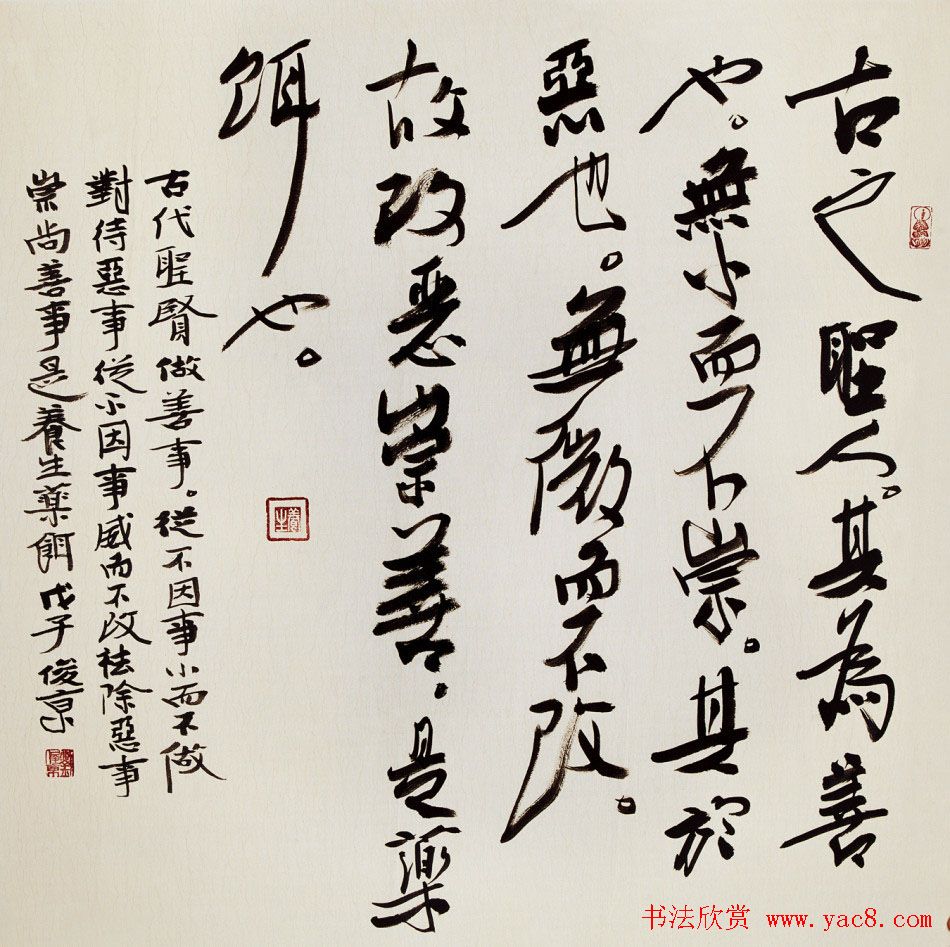 古之聖人。其為善
也。無小而不崇。其於
惡也。無微而不改。
故改惡崇善。是藥
餌也。
古代聖賢做善事。從不因事小而不做
對待惡事從不因事威而不改祛除惡事
崇尚善事是養生藥餌戊子俊京
養生
书法欣赏 www.yac8.com